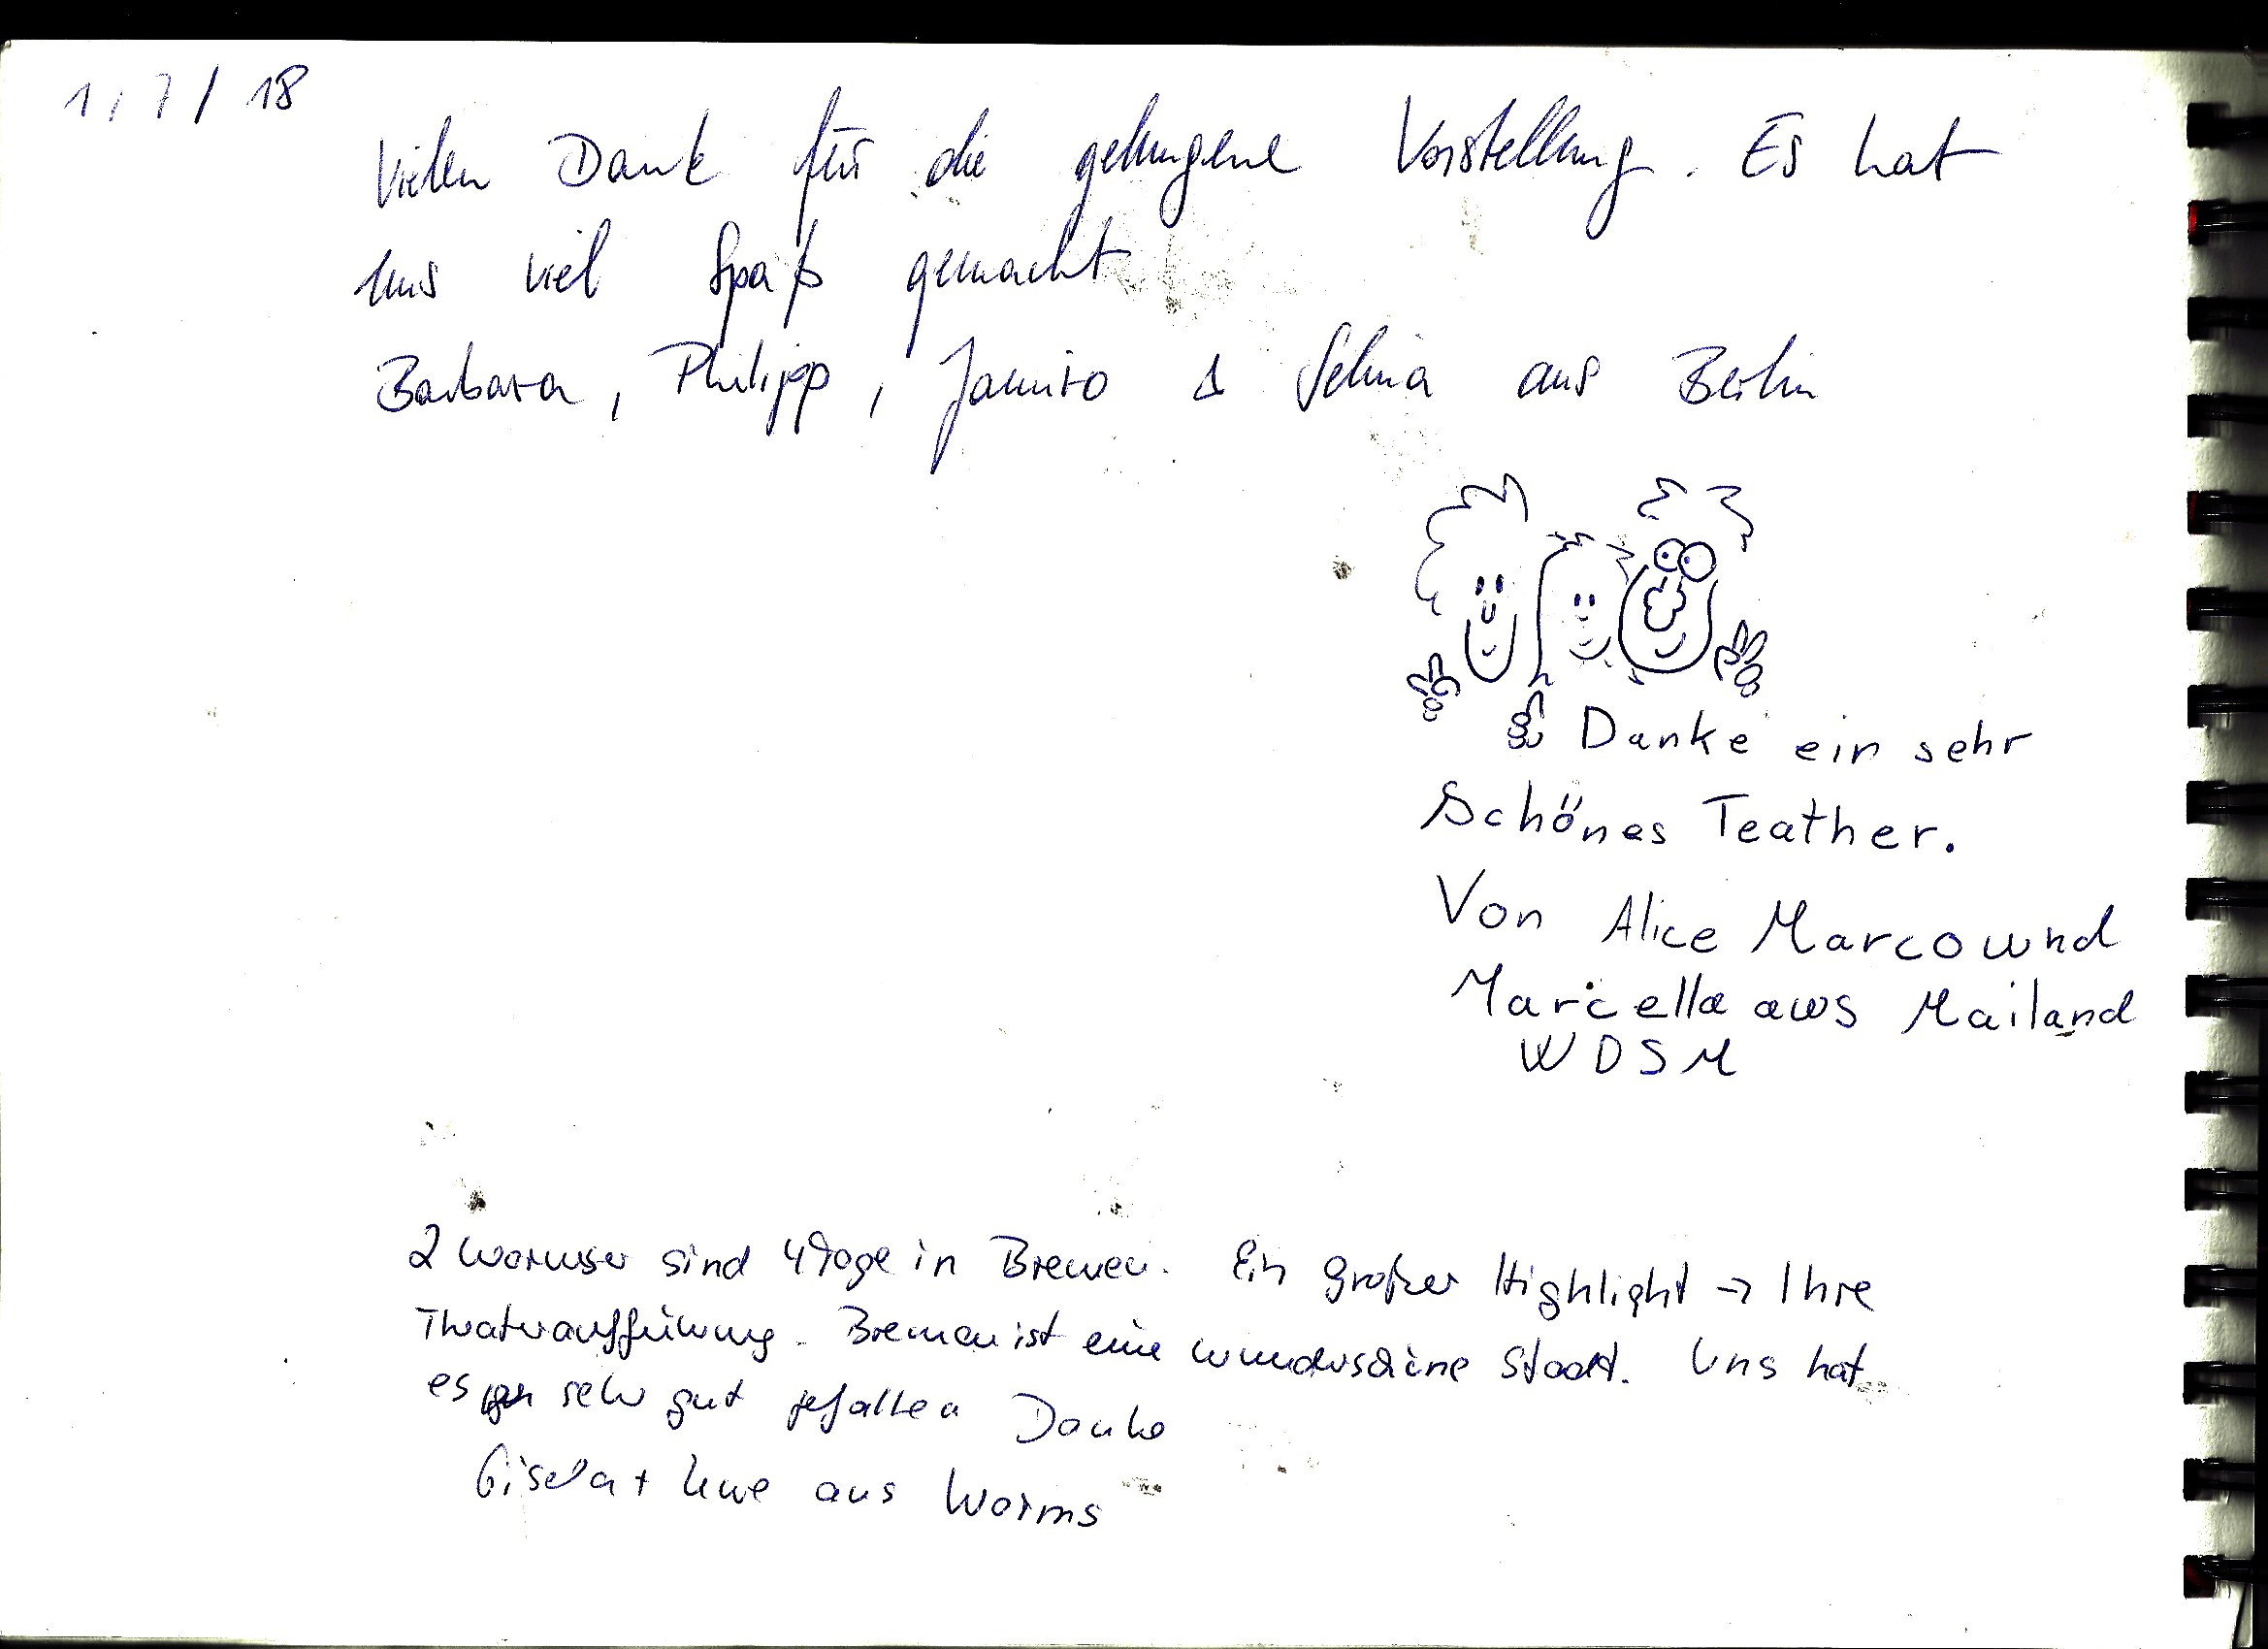 1/7/18
Vielen Dank für die gelungene Vorstellung. Es hat
uns viel Spaß gemacht
Barbara, Philipp, Jamiro & Selina aus Berlin
Danke ein sehr
schönes Teather.
Von Alice Marco und
Marcella aus Mailand
WDSM
2 Wormser sind 4 Tage in Bremen. Ein großer Highlight → Ihre
Theateraufführung. Bremen ist eine wunderschöne Stadt. Uns hat
es sehr gut gefallen Danke
Gisela + Uwe aus Worms